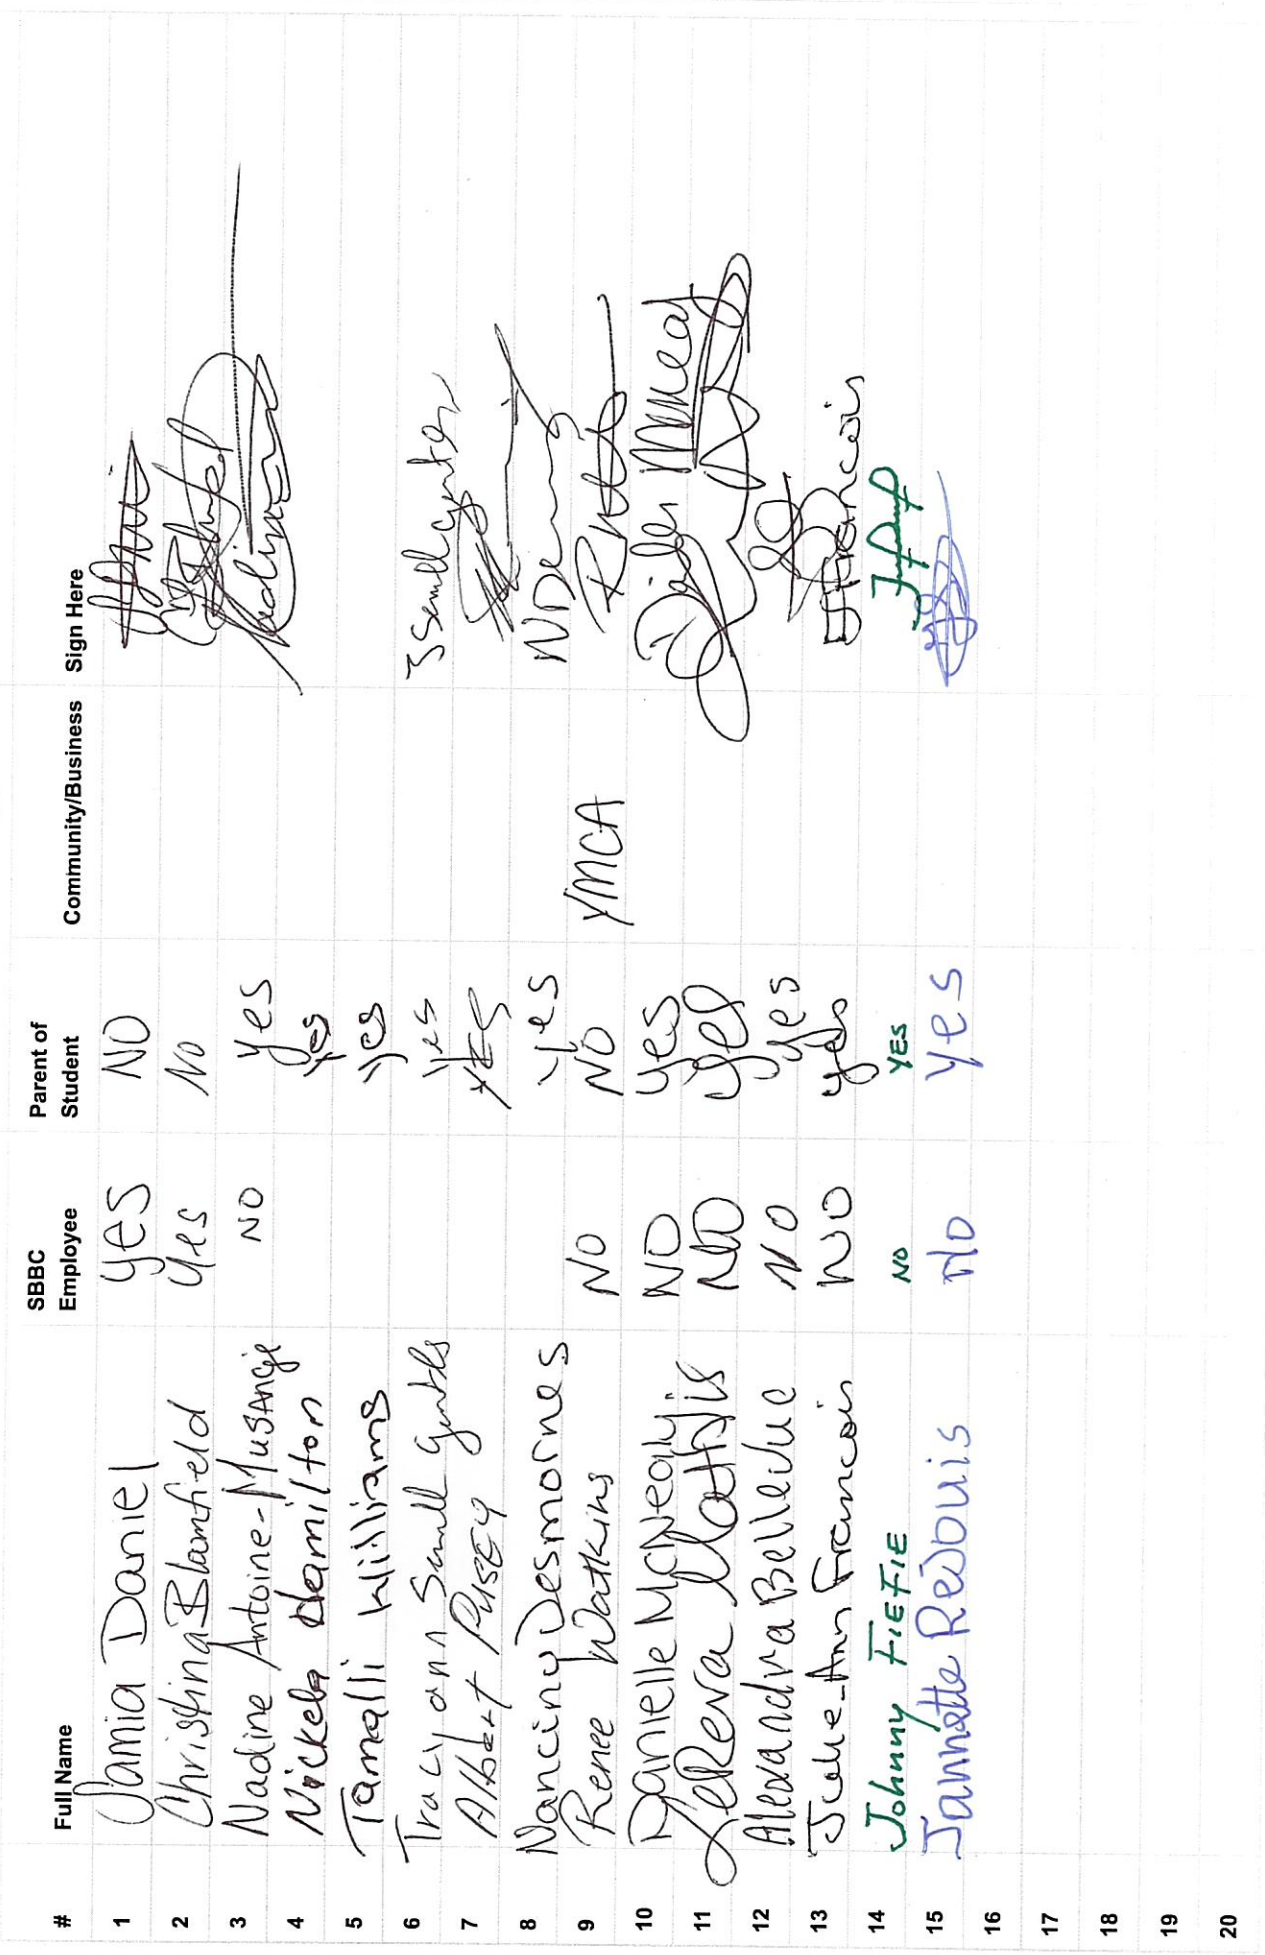 # Full Name SBBC Employee Parent of Student Community/Business Sign Here
1 Jamia Daniel Yes NO
2 Christina Blamfield Yes No
3 Nadine Antoine-Musange NO Yes
4 Nickela Hamilton Yes
5 Tamalli Williams Yes
6 Tracy ann Small Yes
7 Albert Pusey YES
8 Nanciny Desmornes Yes NDesmo
9 Renee Watkins No NO YMCA
10 Danielle McNeally NO Yes
11 LeReva Mathis NO Yes
12 Alexandra Bellevue NO Yes
13 Julie-Ann Francois NO Yes JFrancois
14 Johnny FIEFIE NO YES
15 Jannette Redouis No Yes
16
17
18
19
20